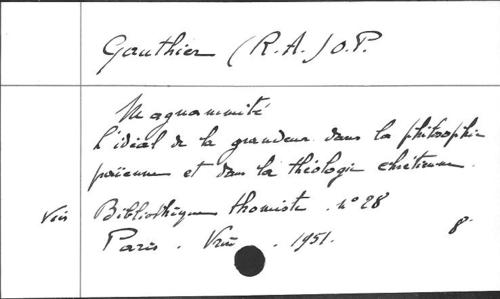 Gauthier (R.A.) O.P.
Magnanimité
L'idéal de la grandeur dans la philosophie
païenne et dans la théologie chrétienne.
Bibliothèque thomiste. n° 28
Paris. Vrin. 1951.
8°